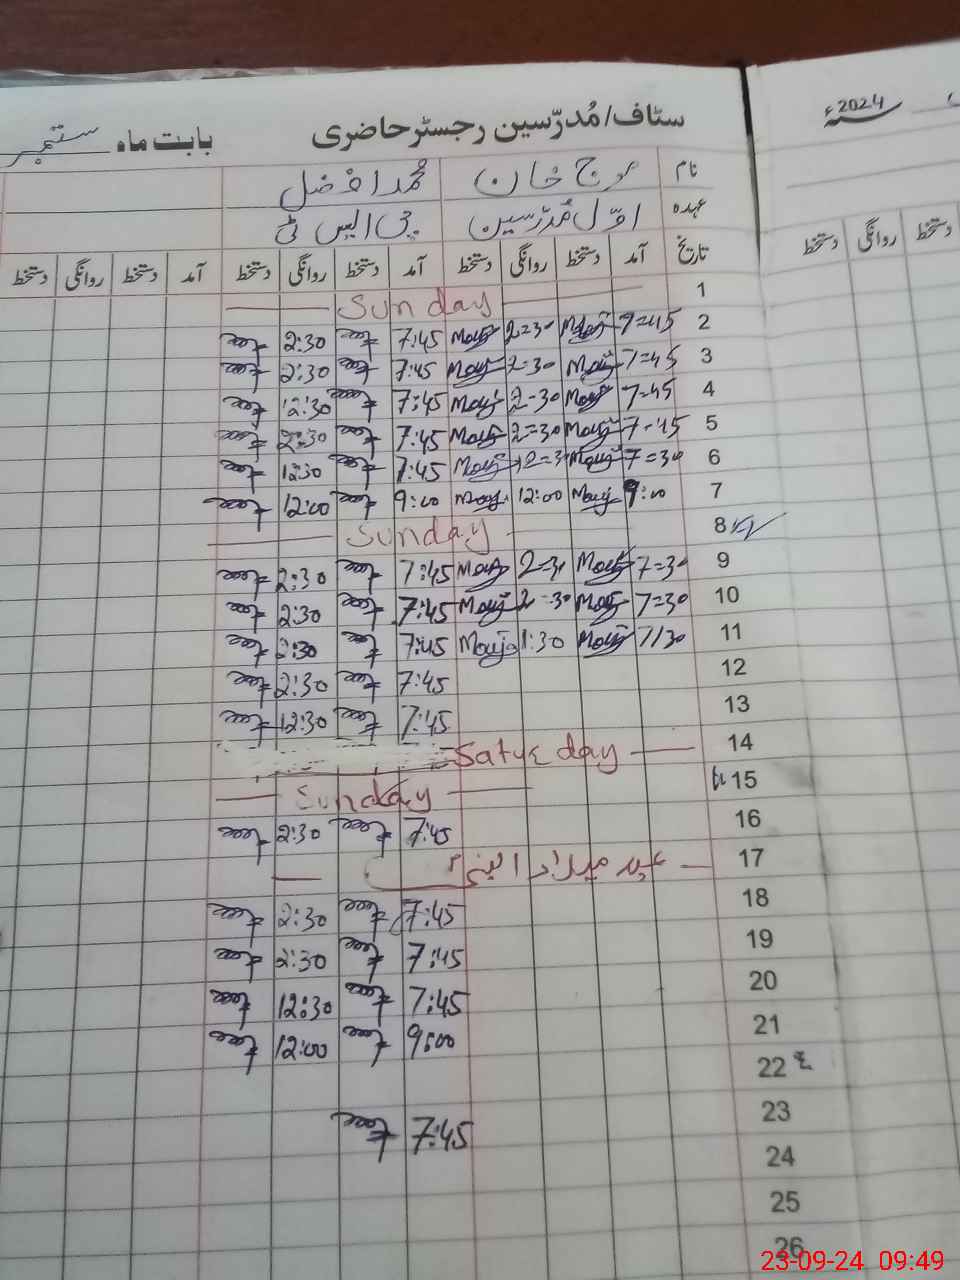 سٹاف/مُدرّسین رجسٹر حاضری بابت ماہ ستمبر
سنہ 2024ء
نام موج خان محمد افضل
عہدہ اوّل مُدرّسین پی ایس ٹی
تاریخ آمد دستخط روانگی دستخط آمد دستخط روانگی دستخط آمد دستخط روانگی دستخط
دستخط روانگی دستخط
1 Sunday
2 7=45 Mouj 2=30 Mouj 7:45 2:30
3 7=45 Mouj 2-30 Mouj 7:45 2:30
4 7=45 Mouj 2-30 Mouj 7:45 12:30
5 7-45 Mouj 2=30 Mouj 7:45 2:30
6 7=30 Mouj 12=30 Mouj 7:45 12:30
7 9:00 Mouj 12:00 Mouj 9:00 12:00
8 Sunday
9 7=30 Mouj 2=30 Mouj 7:45 2:30
10 7=30 Mouj 2=30 Mouj 7:45 2:30
11 7/30 Mouj 1:30 Mouj 7:45 2:30
12 7:45 2:30
13 7:45 12:30
14 Saturday
15 Sunday
16 7:45 2:30
17 عید میلاد النبی
18 7:45 2:30
19 7:45 2:30
20 7:45 12:30
21 9:00 12:00
22
23 7:45
24
25
26
23-09-24 09:49